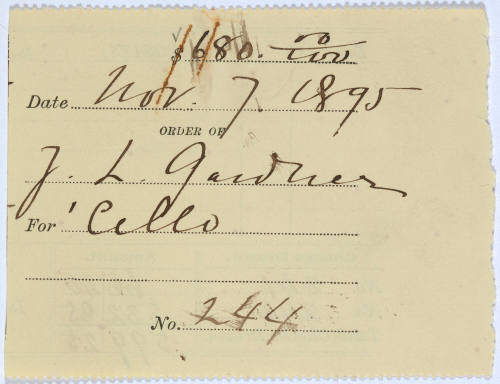 $680. 00/100
Date Nov. 7. 1895
ORDER OF
J. L. Gardner
For 'Cello
No. 244